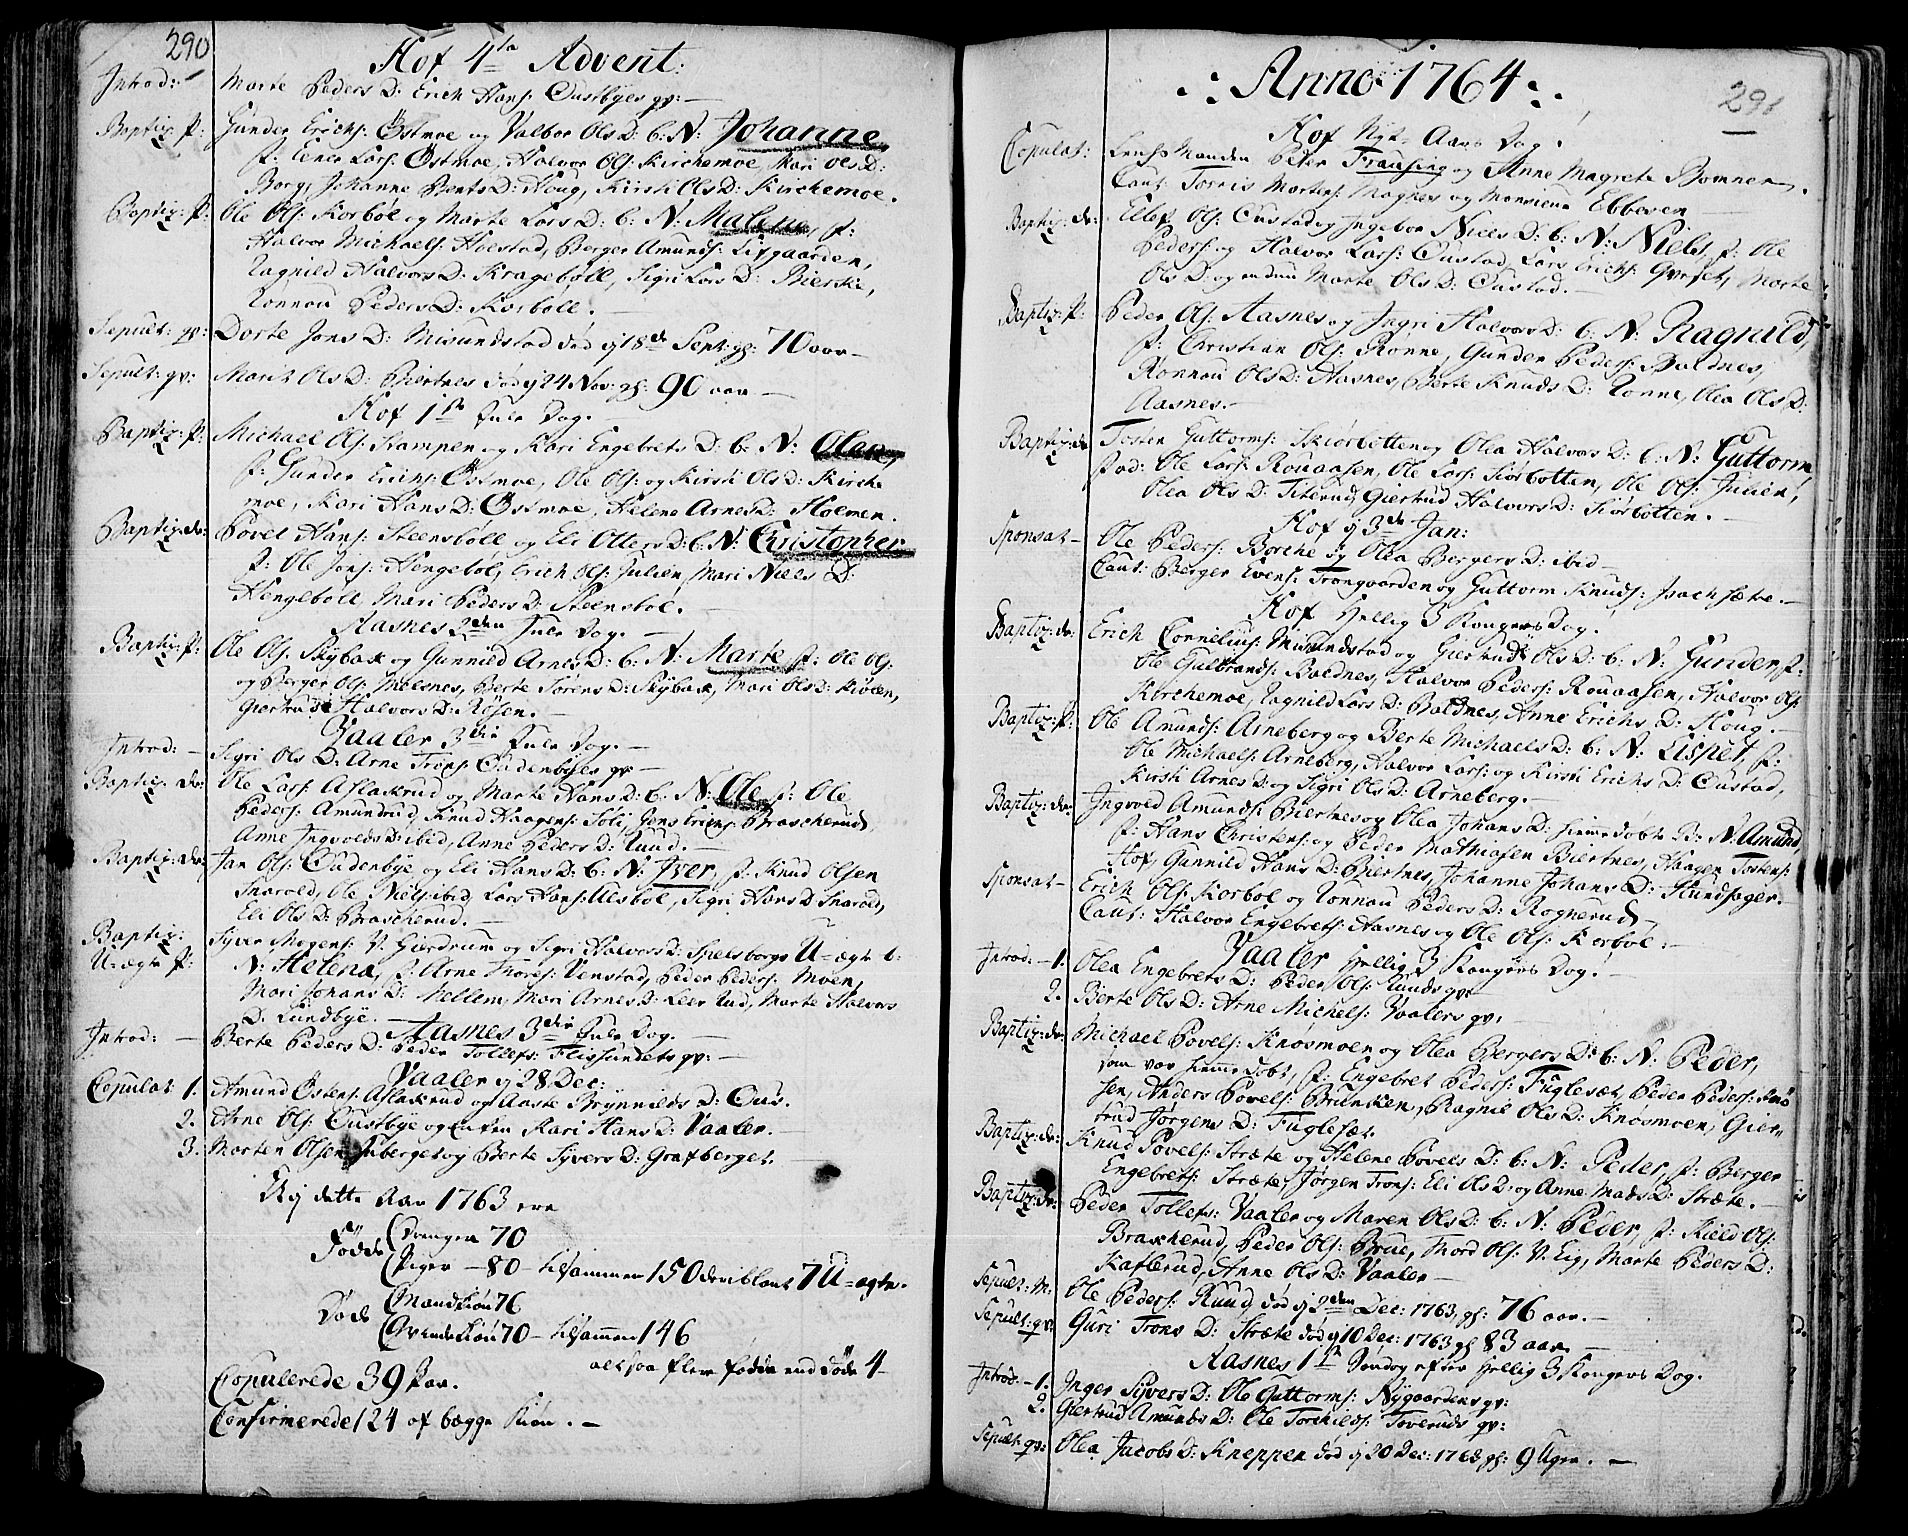 290
Hof 4ta Advent:
Introd: Marte Peders D: Erich Hans: Oustbyes qv: —
Baptiz: p: Gunder Erichs: Östmoe og Valbor Ols D: b: N: Johanne,
p: Ener Lars: Östmoe, Halvor Ols: Kirchemoe, Kari Ols D:
Borg, Johanne Bents D: Houg, Kirsti Ols D: Kirchemoe.
Baptiz: p: Ole Ols: Korböl og Marte Lars D: b: N: Malene, p:
Halvor Michaels: Holstad, Berger Amunds: Lisgaarden,
Ragnild Halvors D: Kragebøll, Sigri Lars D: Bierske,
Rønnou Peders D: Korböll. —
Sepult: qv: Dorte Jons D: Misundstad død ij 18de Sept: gl: 70 aar —
Sepult: qv: Marit Ols D: Biertnes død ij 24 Nov: gl: 90 aar —
Hof 1ste Jule Dag. —
Baptiz: p: Michael Ols: Stampen og Kari Engebrets D: b: N: Olave,
p: Gunder Erichs: Östmoe, Ole Ols: og Kirsti Ols D: Kirche
moe, Kari Hans D: Östmoe, Helene Arnes D: Holmen.
Baptiz: dr: Povel Hans: Steensböll og Eli Otters D: b: N: Christopher
p: Ole Jons: Hengeböl, Erich Ols: Julien, Mari Niels D:
Hengeböll, Mari Peders D: Steensböl. —
Aasnes 2den Jule Dag. —
Baptiz: p: Ole Ols: Skÿbak og Gunnild Arnes D: b: N: Marte p: Ole Ols:
og Berger Ols: Moesnes, Berte Sørens D: Skÿbak, Mari Ols D: Kiölen,
Giertrud Halvors D: Rösen. —
Vaaler 3die Jule Dag. —
Introd: — Sigri Ols D: Arne Trons: Oudenbyes qv —
Baptiz: dr: Ole Lars: Aslakrud og Marte Hans D: b: N: Ole p: Ole
Peders: Amundrud, Knud Haagens: Solij, Jens Erichs: Brascherud,
Anne Ingvolds D: ibid, Anne Peders D: Ruud. —
Baptiz: dr: Jan Ols: Oudenbye og Eli Hans D: b: N: Iver, p: Knud Olsen
Snarold, Ole Niels: ibid, Lars Hans: Ulsböl, Sigri Hans D: Snarold,
Eli Ols D: Brascherud. —
Baptiz: Syver Mogens: V. Gierdrum og Sigri Halvors D: Spetsbergs U=ægte b:
U=ægte p: N: Helena, p: Arne Thores: Venstad, Peder Peders: Moen,
Mari Johans D: Mellem, Mari Arnes D: Leer Rud, Marte Halvors
D: Lundbye. — Aasnes 3die Jule Dag. —
Introd: — Berte Peders D: Peder Tollefs: Flissundets qv: —
Vaaler ij 28 Dec:
Copulat: 1. Amund Östens: Aslakrud og Aaste Brÿnnilds D: Ous.
2. Arne Ols: Oustbye og Enken Kari Hans D: Vaaler. —
3. Morten Olsen Inberget og Berte Syvers D: Grafberget. —
Udj dette Aar 1763 ere
Födde (Drenge 70
(Piger — 80 — tilsammen 150 deriblant 7 U=ægte.
Døde (Mandkiön 76
(Qvindekiön 70 — tilsammen 146
altsaa flere födde end döde 4
Copulerede 39 Par.
Confirmerede 124 af begge Kiön. —
∴ Anno 1764 ∴
291
Hof Nyt-Aars Dag.
Copulat: Lensmanden Peder Frausing og Anne Magrete Bomnen.
Caut: Torris Mortens: Magnes og Monsieur Ebbesen —
Baptiz: dr: Ellef Ols: Oustad og Ingebor Niels D: b: N: Niels, p: Ole
Peders: og Halvor Lars: Oustad, Lars Erichs: Qvesett, Marte
Ols D: og endnu Marte Ols D: Oustad. —
Baptiz: p: Peder Ols: Aasnes og Ingri Halvors D: b: N: Ragnild,
p: Christian Ols: Rønne, Gunder Peders: Boldnes,
Rønnou Ols D: Aasnes, Berte Knuds D: Rønne, Olea Ols D:
Aasnes. —
Baptiz: dr: Tosten Guttorms: Skiörbotten og Olea Halvors D: b: N: Guttorm,
Fad: Ole Lars: Rouaasen, Ole Lars: Skiörbotten, Ole Ols: Julien,
Olea Ols D: Titerud, Giertrud Halvors D: Skiörbotten. —
Hof ij 3de Jan:
Sponsat — Ole Peders: Borche og Olea Bergers D: ibid —
Caut: Berger Evens: Trangaarden og Guttorm Knuds: Isachsætre. —
Hof Hellig 3 Kongers Dag.
Baptiz: dr: Erich Cornelius: Misundstad og Giertrud Ols D: b: N: Gunder, p:
Ole Gulbrands: Boldnes, Halvor Peders: Rouaasen, Halvor Ols:
Kirchemoe, Ragnild Lars D: Boldnes, Anne Erichs D: Houg. —
Baptiz: p: Ole Amunds: Arneberg og Berte Michaels D: b: N: Lispet, p:
Ole Michaels: Arneberg, Halvor Lars: og Kirsti Erichs D: Oustad,
Kirsti Arnes D: og Sigri Ols D: Arneberg. —
Baptiz: dr: Ingvold Amunds: Biertnes og Olea Johans D: hiemmedøbte B: N: Amund,
p: Hans Christens: og Peder Mathiasen Biertnes, Haagen Tostens:
Hof, Gunnild Hans D: Biertnes, Johanne Johans D: Hundsager.
Sponsat — Erich Ols: Korböl og Rønnou Peders D: Rognerud —
Caut: Halvor Engebrets: Aasnes og Ole Ols: Korböl: —
Vaaler Hellig 3 Kongers Dag.
Introd: — 1. Olea Engebrets D: Peder Ols: Ruuds qv: —
2. Berte Ols D: Arne Michels: Vaalers qv:
Baptiz: dr: Michael Povels: Knösmoen og Olea Bergers D: b: N: Peder,
som var hiemmedøbt, p: Engebret Peders: Fuglesæt, Peder Peders: Knö
sen, Anders Povels: Bruncken, Ragnil Ols D: Knösmoen, Gier
trud Jørgens D: Fuglesæt.
Baptiz: dr: Knud Povels: Stræte og Helene Povels D: b: N: Peder, p: Berger
Engebrets: Stræte, Jørgen Trons: Eli Ols D: og Anne Mads D: Stræte. —
Baptiz: dr: Peder Tollefs: Vaaler og Maren Ols D: b: N: Peder, p: Kield Ols:
Brascherud, Peder Ols: Brue, Thord Ols: V. Eig, Marte Peders D:
Katlerud, Anne Ols D: Vaaler —
Sepult: M. Ole Peders: Ruud, død ij 2den Dec: 1763, gl: 76 aar. —
Sepult: qv: Guri Trons D: Stræte død ij 10 Dec: 1763 gl 83 aar. —
Aasnes 1ste Søndag efter Hellig 3 Kongers Dag.
Introd. — 1. Inger Syvers D: Ole Guttorms: Nÿgaardens qv:
2. Giertrud Amunds D: Ole Torchilds: Toveruds qv:
Sepult: qv: Olea Jacobs D: Kneppen død ij 20 Dec: 1763 gl: 9 Uger. —